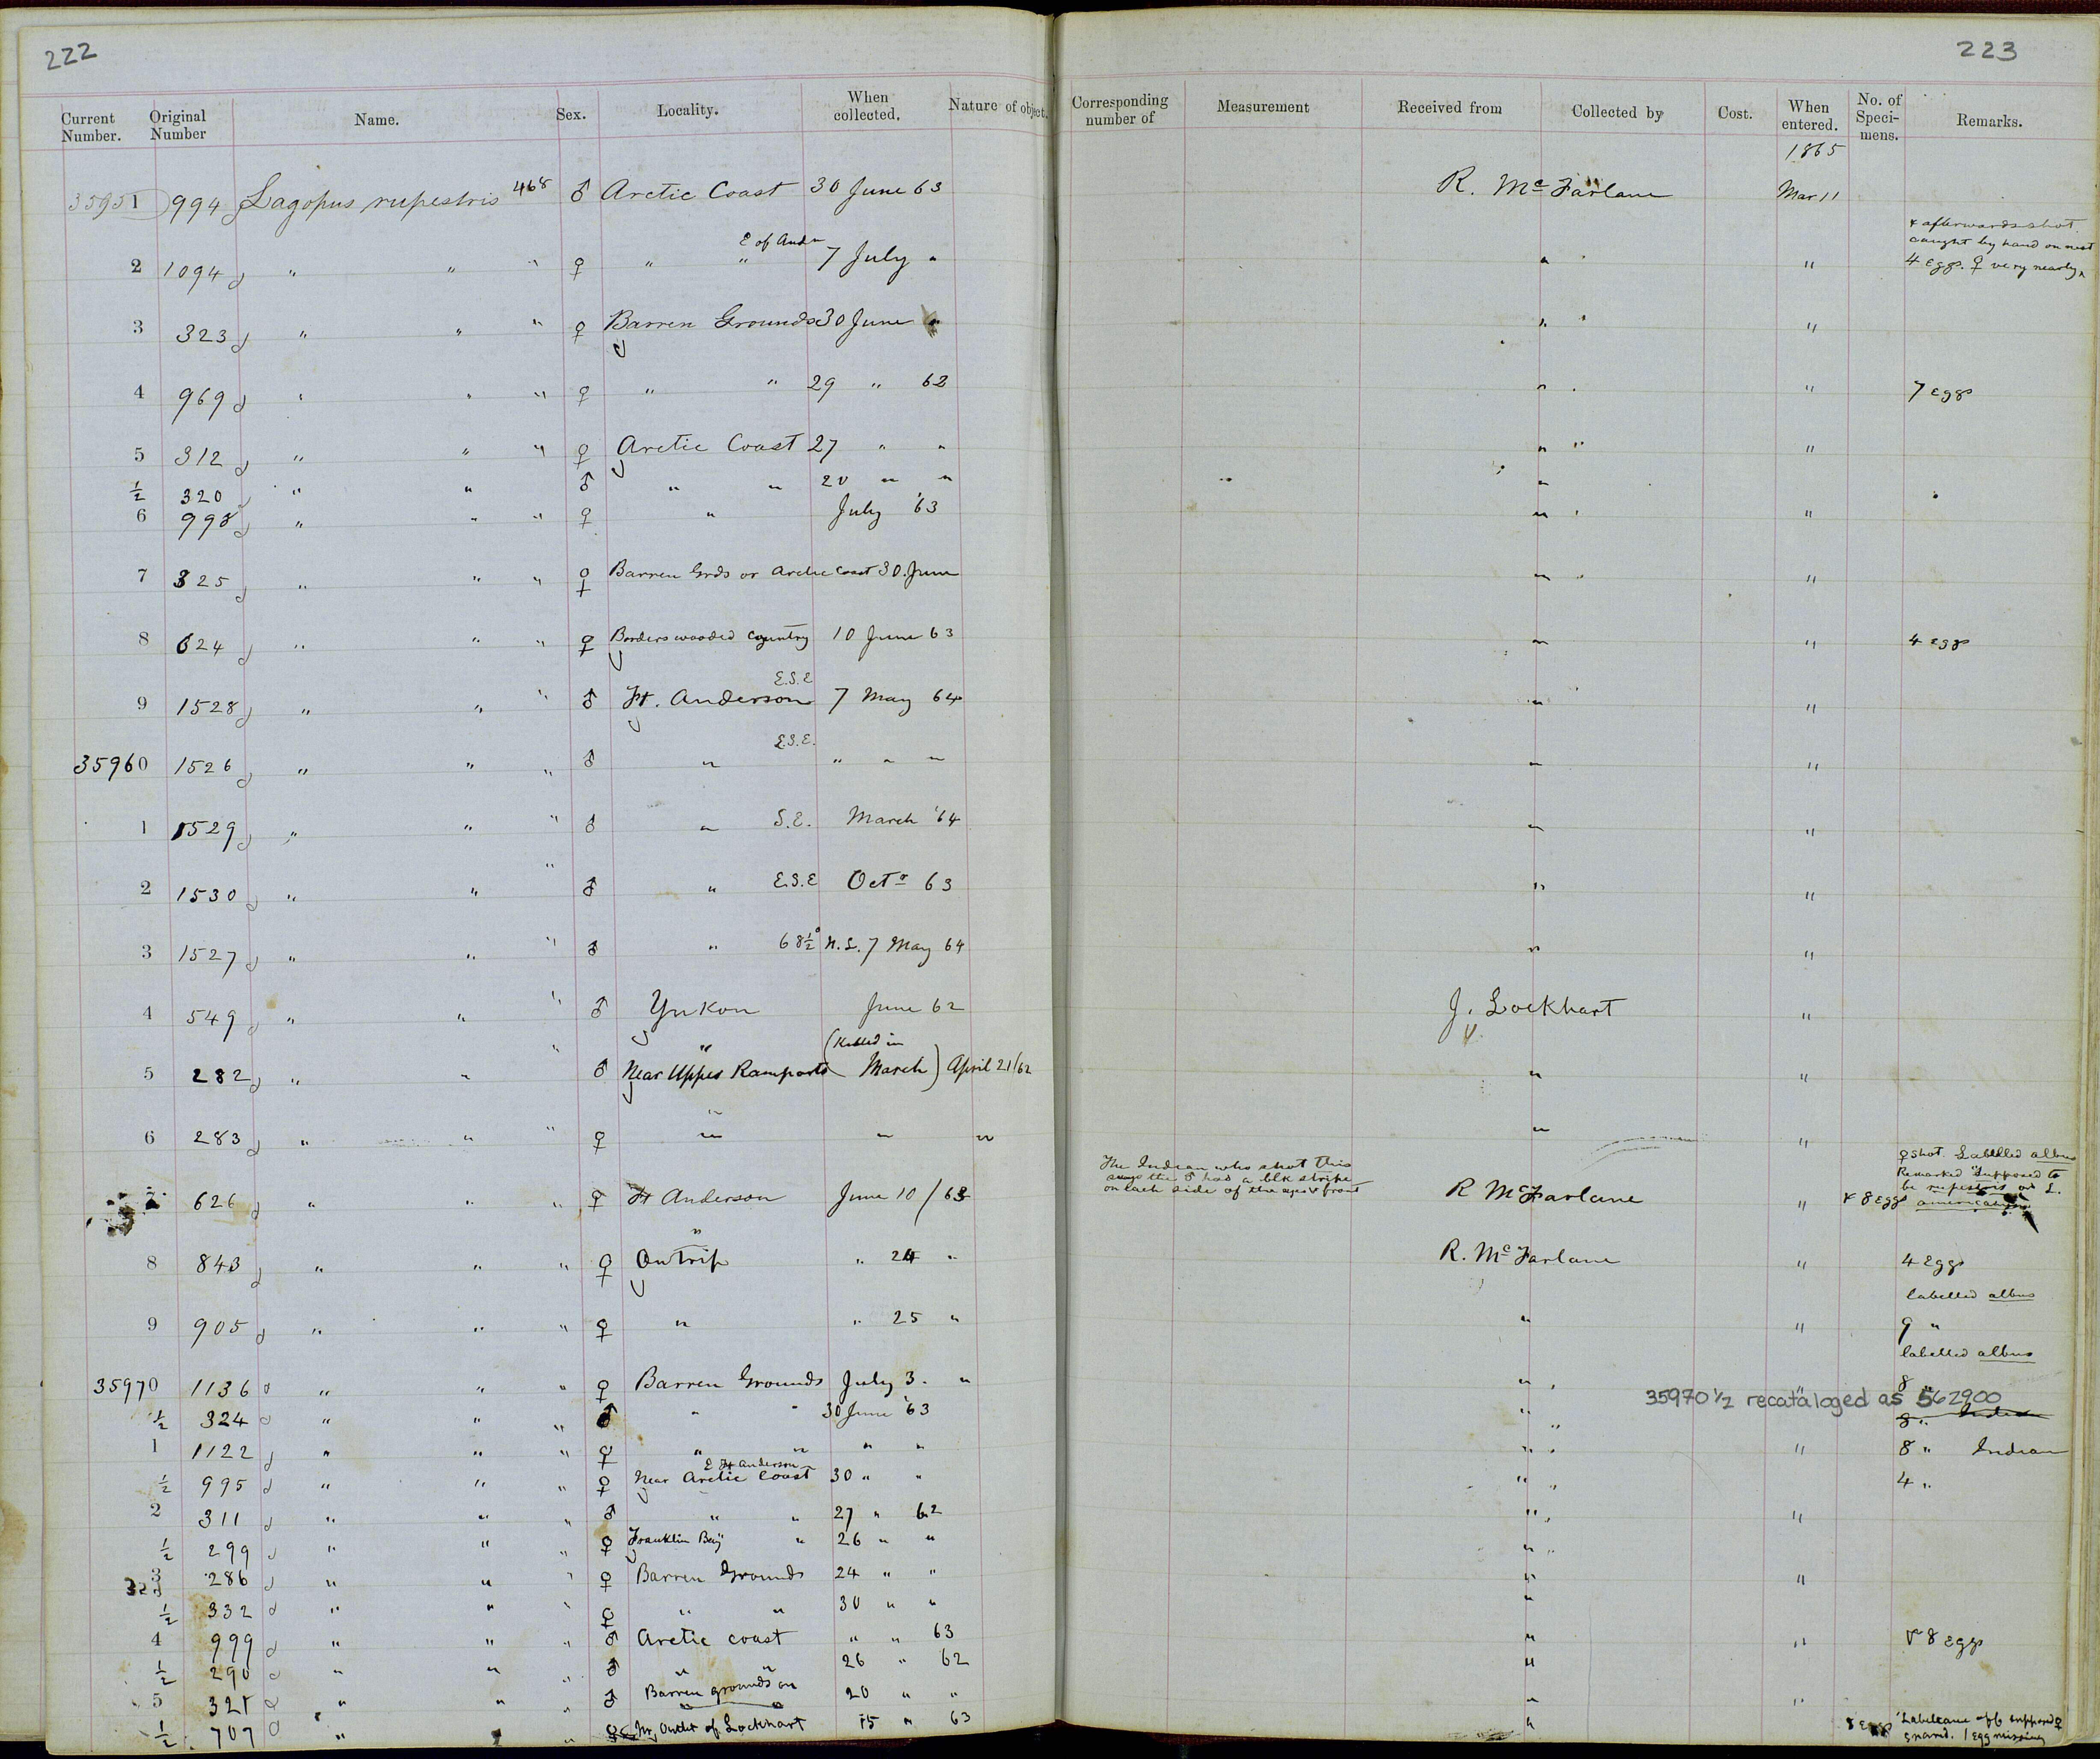 222
223
Current Number. Original Number Name. Sex. Locality. When collected. Nature of object. Corresponding number of Measurement Received from Collected by Cost. When entered. No. of Specimens. Remarks.
1865
35951 994 Lagopus rupestris 468 ♂ Arctic Coast 30 June 63 R. McFarlane Mar 11
& afterwards shot.
caught by hand on nest
E of Andn
2 1094 " " " ♀ " " 7 July " " " 4 eggs. ♀ very nearly
3 323 " " " ♀ Barren Grounds 30 June " " "
4 969 " " " ♀ " " 29 " 62 " " 7 eggs
5 312 " " " ♀ Arctic Coast 27 " " " "
½ 320 " " ♂ " " 20 " " "
6 998 " " " ♀ " July '63 " "
7 325 " " " ♀ Barren Grds or Arctic Coast 30. June " "
8 624 " " " ♀ Borders wooded country 10 June 63 " " 4 eggs
E.S.E
9 1528 " " " ♂ Ft. Anderson 7 May 64 " "
E.S.E.
35960 1526 " " " ♂ " " " " " "
1 1529 " " " ♂ " S.E. March '64 " "
2 1530 " " " ♂ " E.S.E Octr 63 " "
3 1527 " " " ♂ " 68½° N.L. 7 May 64 " "
4 549 " " " ♂ Yukon June 62 J. Lockhart "
" (Killed in
5 282 " " " ♂ Near Upper Ramparts March) April 21/62 " "
6 283 " " " ♀ " " " " "
The Indian who shot this
says the ♂ had a blk stripe
on each side of the eyes & front
♀ shot. Labelled albus
Remarked "Supposed to
be rupestris or L.
americanus
626 " " " ♀ Ft Anderson June 10/63 R McFarlane " & 8 eggs
"
8 843 " " " ♀ On trip " 24 " R. McFarlane " 4 eggs
labelled albus
9 905 " " " ♀ " " 25 " " " 9 "
labelled albus
35970 1136 " " " ♀ Barren Grounds July 3. " " " 8 "
35970 1/2 recataloged as 562900
½ 324 " " " ♂ " " 30 June '63 " 8 " Indian
1 1122 " " " ♀ " " " " " " 8 " Indian
E Ft Anderson
½ 995 " " " ♀ Near Arctic Coast 30 " " " 4 "
2 311 " " " ♂ " " 27 " 62 " "
½ 299 " " " ♀ Franklin Bay " 26 " " "
3 286 " " " ♀ Barren Grounds 24 " " " "
½ 332 " " " ♀ " " 30 " " "
4 999 " " " ♂ Arctic coast " " 63 " " 8 eggs
½ 290 " " " ♂ " " 26 " 62 "
5 321 " " " ♂ Barren grounds on 20 " " " "
½ 707 " " " ♀ Nr. Outlet of Lockhart 15 " 63 "
snared. 1 egg missing